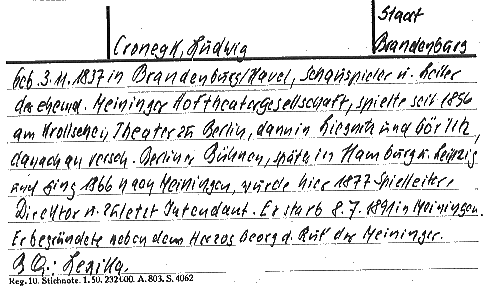 Staat
Cronegk, Ludwig
Brandenburg
Geb. 3.11.1837 in Brandenburg/Havel, Schauspieler u. Leiter
der ehemal. Meininger Hoftheatergesellschaft, spielte seit 1856
am Krollschen Theater zu Berlin, dann in Liegnitz und Görlitz,
danach an versch. Berliner Bühnen, später in Hamburg u. Leipzig
und ging 1866 nach Meiningen, wurde hier 1877 Spielleiter,
Direktor u. zuletzt Intendant. Er starb 8.7.1891 in Meiningen.
Er begründete neben dem Herzog Georg d. Ruf der Meininger.
Lexika.
Reg. 10. Stichnote. 1. 50. 232 000. A. 803. S. 4062